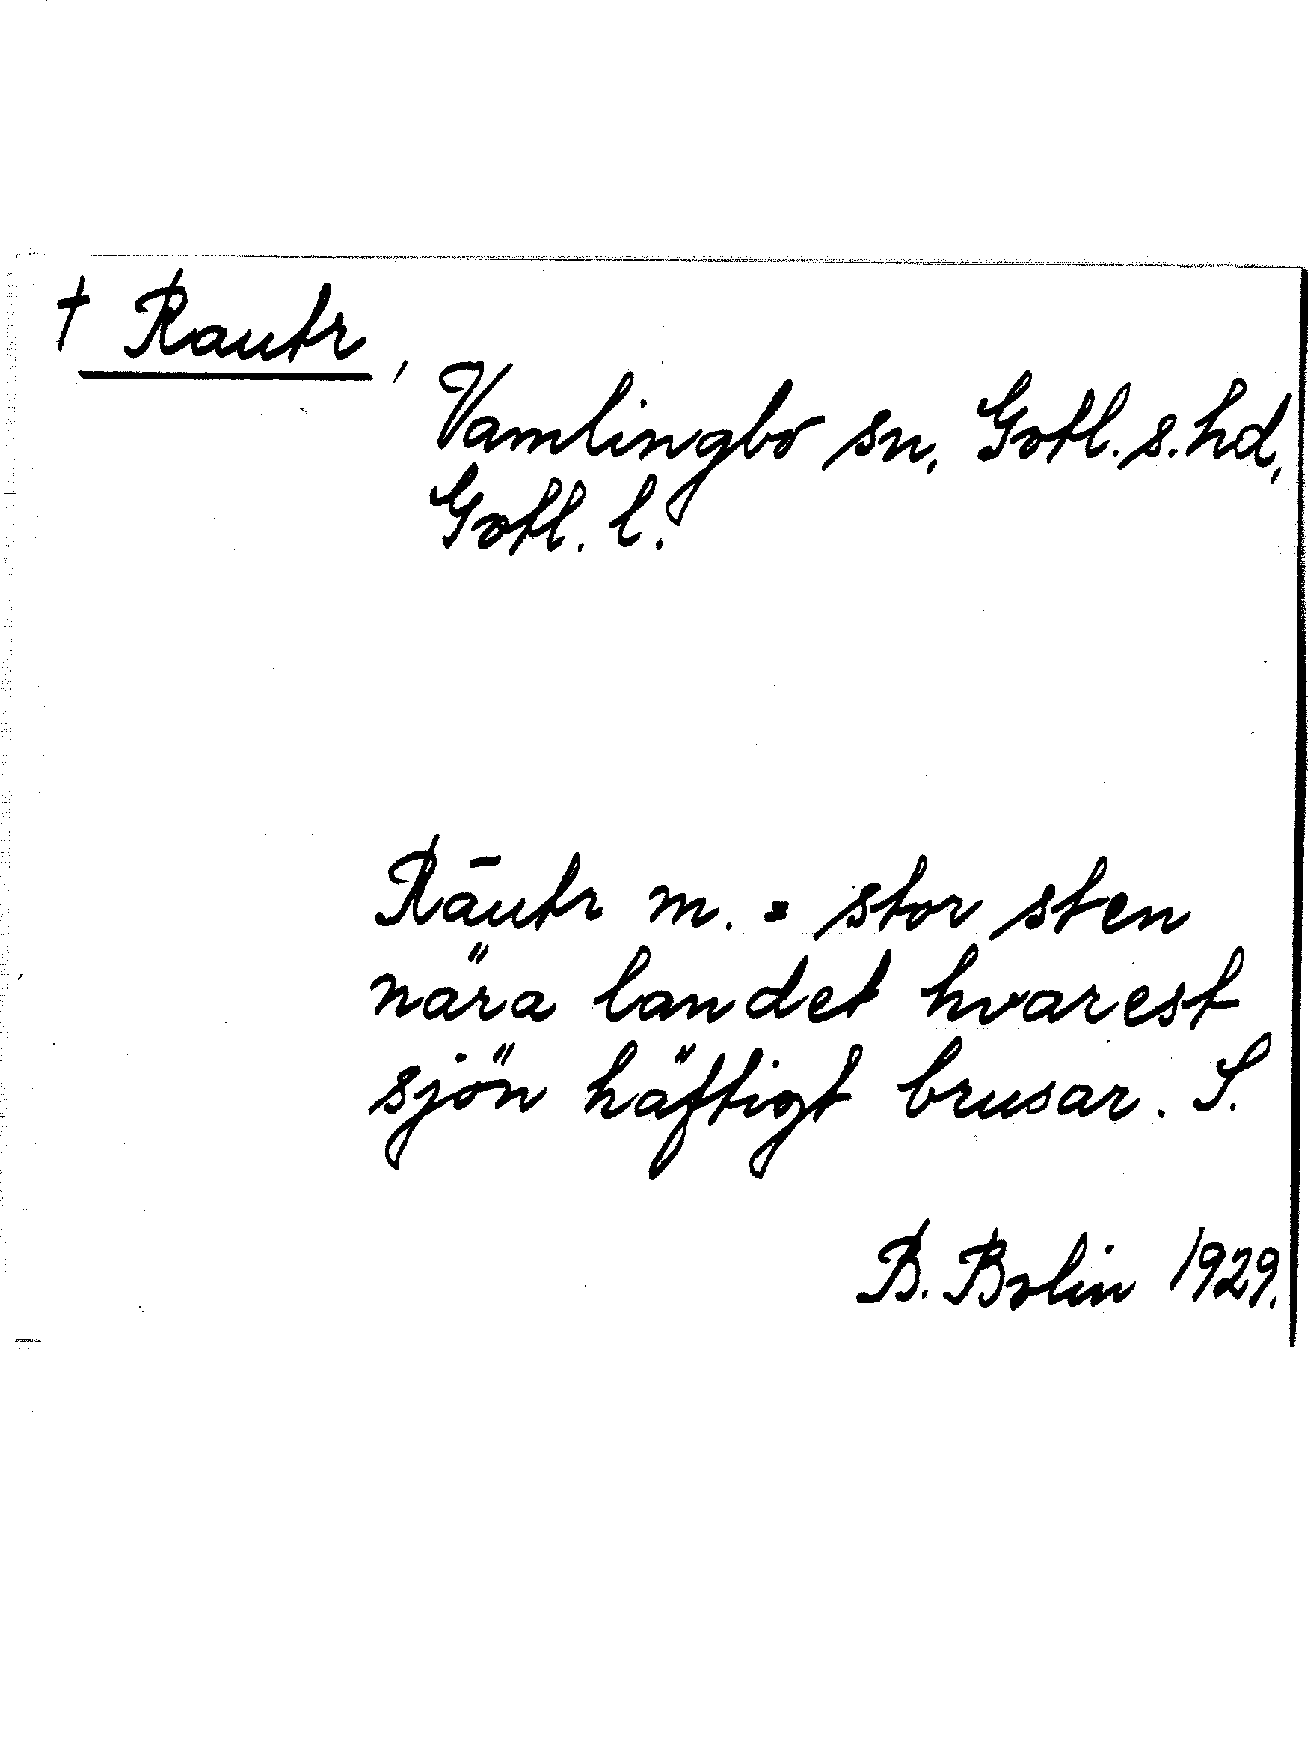 † Rautr,
Vamlingbo sn, Gotl. s. hd,
Gotl. l.
Rāutr m. = stor sten
nära landet hvarest
sjön häftigt brusar. S.
B. Bolin 1929.